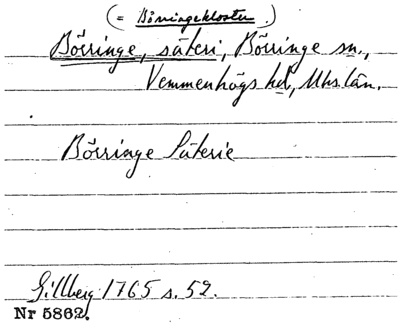 (= Börringekloster.)
Börringe, säteri, Börringe sn.,
Vemmenhögs hd, Mhs län.
Börringe Säterie
Gillberg 1765 s. 52.
Nr 5862.